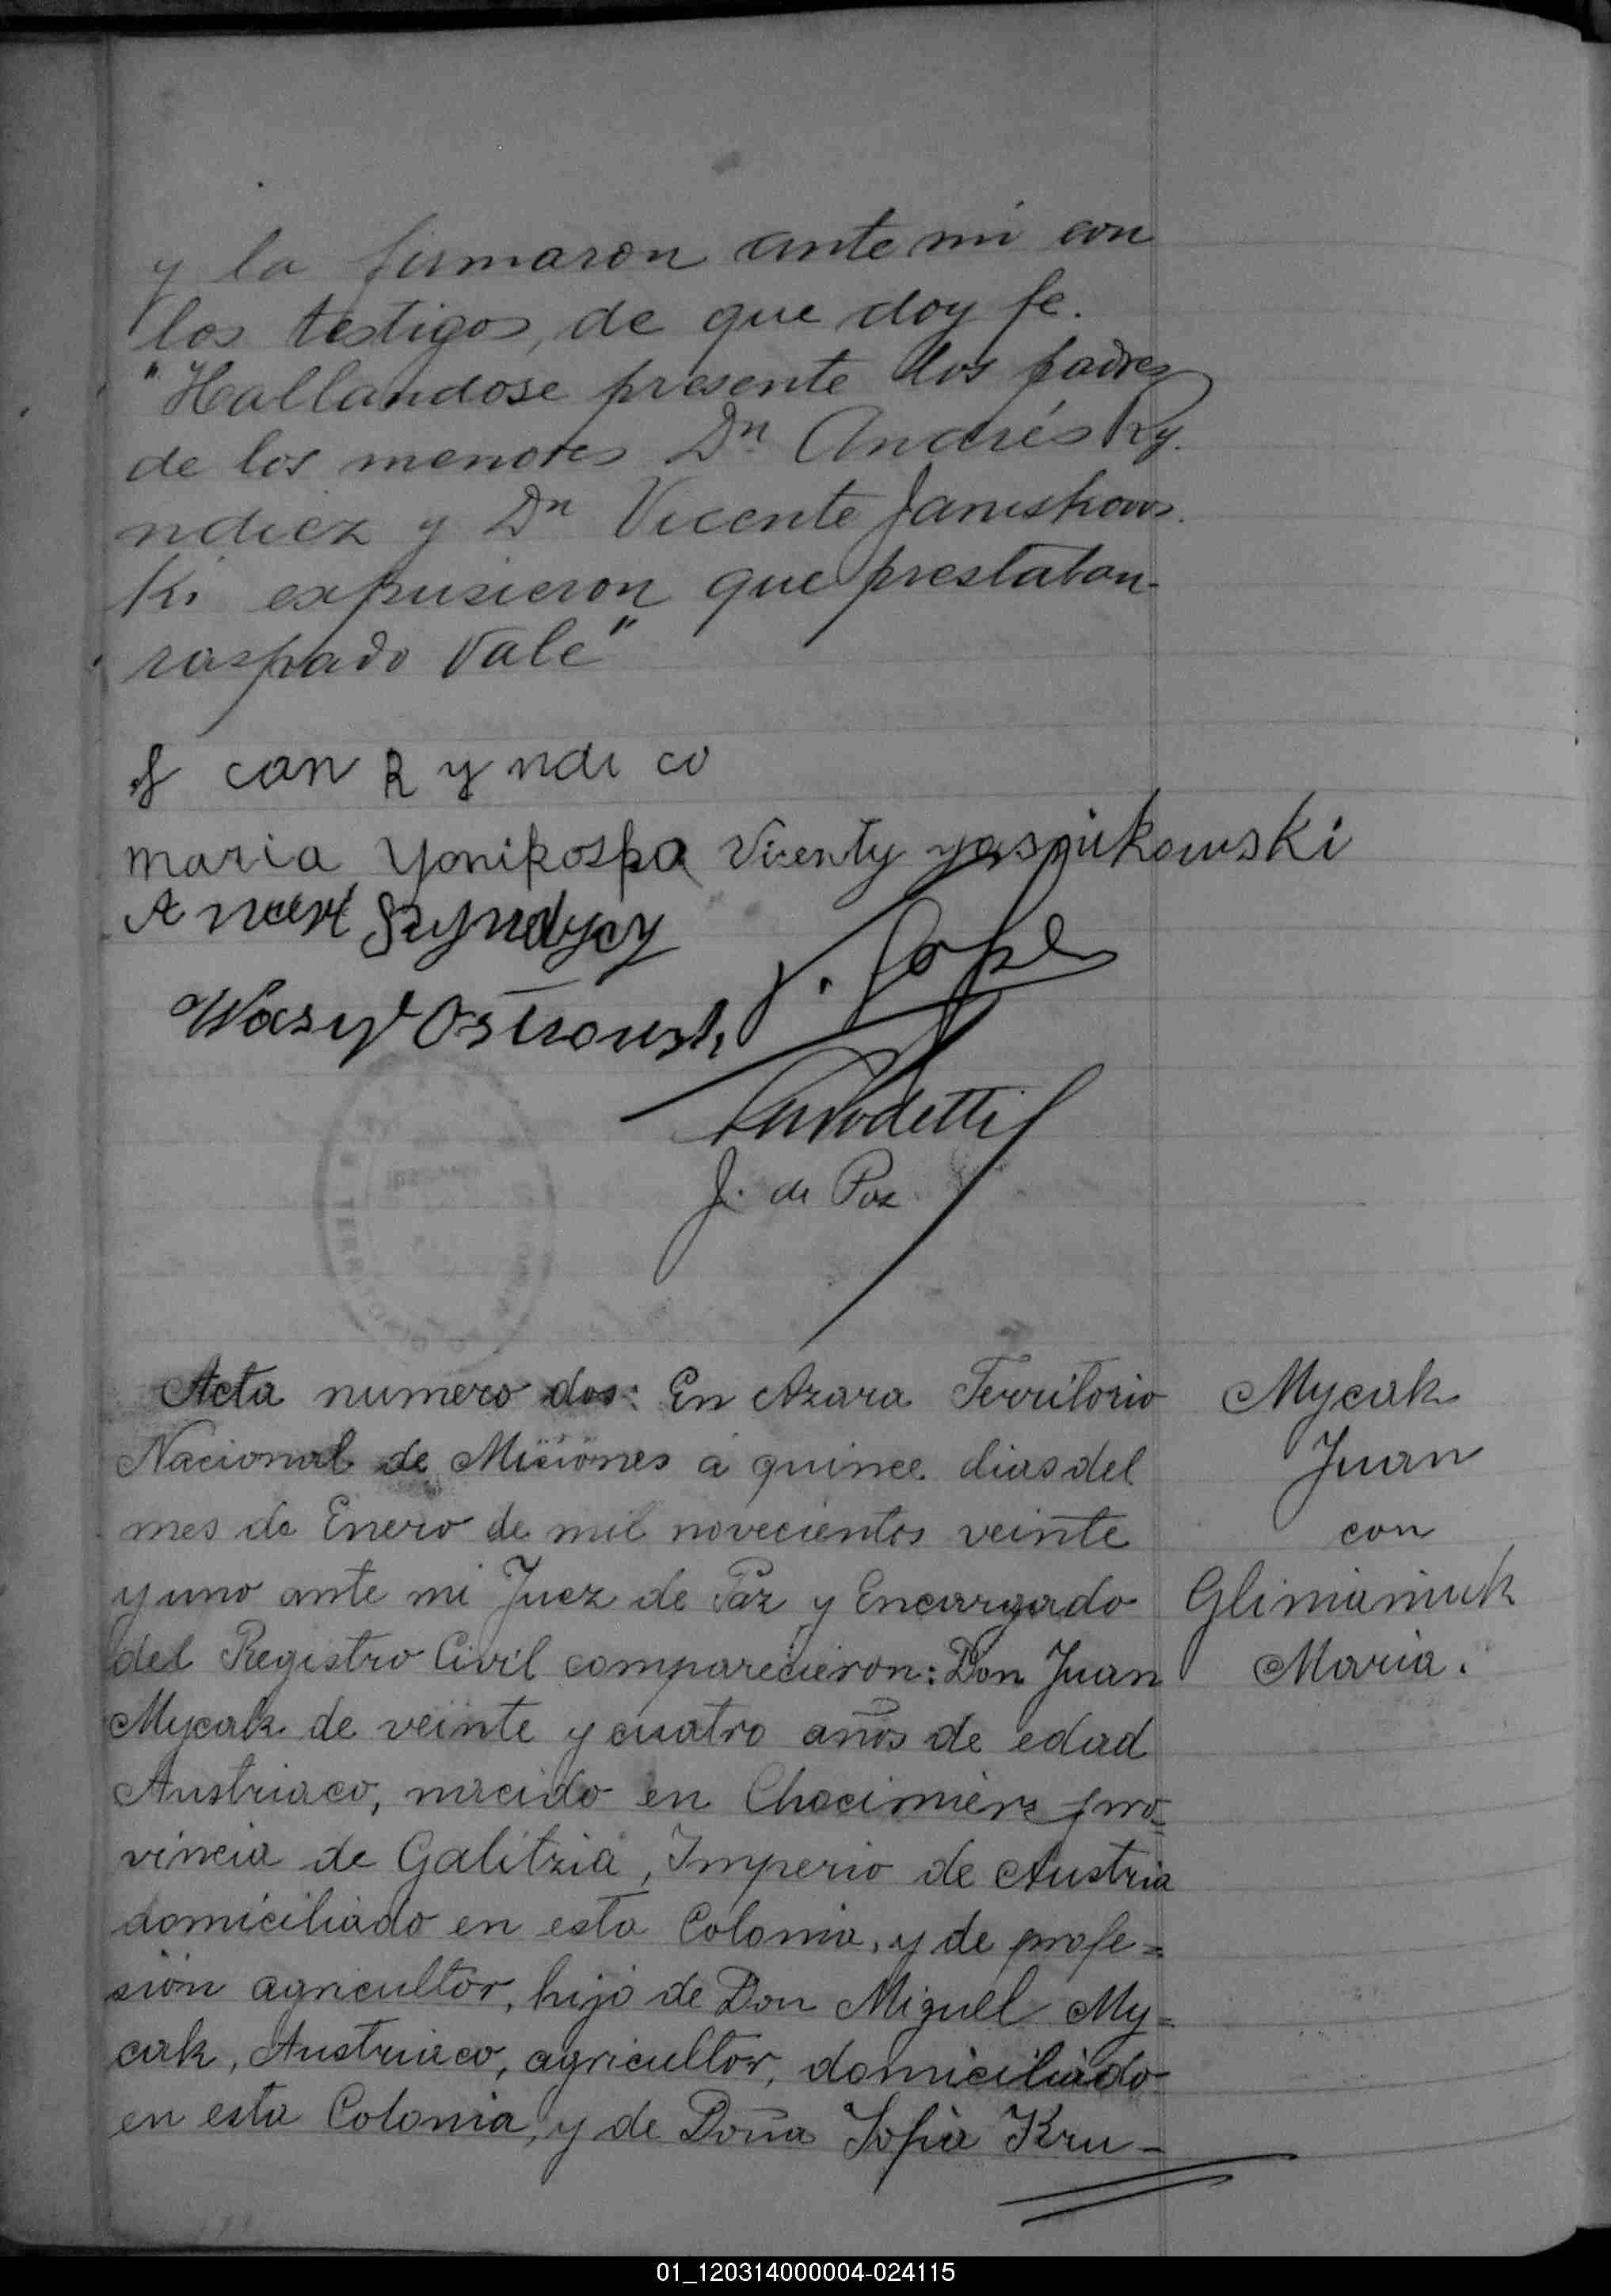 y la firmaron ante mi con
los testigos, de que doy fe.
"Hallandose presente los padres
de los menores Dn Andrés Ry.
ndiez y Dn Vicente Janishows.
Ki expusieron que prestaban-
raspado Vale"
can Ryndi co
maria Yonikoska Vicenty yasnikowski
Wasyl Ostrowski
J. de Paz
Acta numero dos: En Azara Territorio
Nacional de Misiones a quince dias del
mes de Enero de mil novecientos veinte
y uno ante mi Juez de Paz y Encargado
del Registro Civil comparecieron: Don Juan
Mycak de veinte y cuatro años de edad
Austriaco, nacido en Chocimierz pro=
vincia de Galitzia, Imperio de Austria
domiciliado en esta Colonia, y de profe=
sion agricultor, hijo de Don Miguel My=
cak, Austriaco, agricultor, domiciliado
en esta Colonia, y de Doña Sofia Kru-
Mycak
Juan
con
Glimaniuk
Maria.
01_120314000004-024115